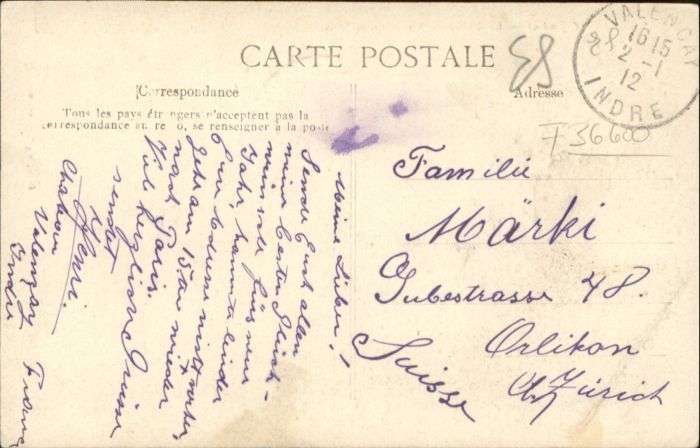 CARTE POSTALE
Correspondance
Tous les pays étrangers n'acceptent pas la
correspondance au recto, se renseigner à la poste
Adresse
VALENÇAY
16 15
2 - 1
12
INDRE
F 36600
Meine Lieben!
Sende Euch allen
meine besten Glück-
wünsche fürs neue
Jahr, konnte leider
nicht
Gehe am 15. wieder
nach Paris.
Viele herzlichen Grüsse
sendet
Henri.
Chateau
Valençay
Indre France
Familie
Märki
Gubestrasse 48.
Örlikon
b/ Zürich
Suisse